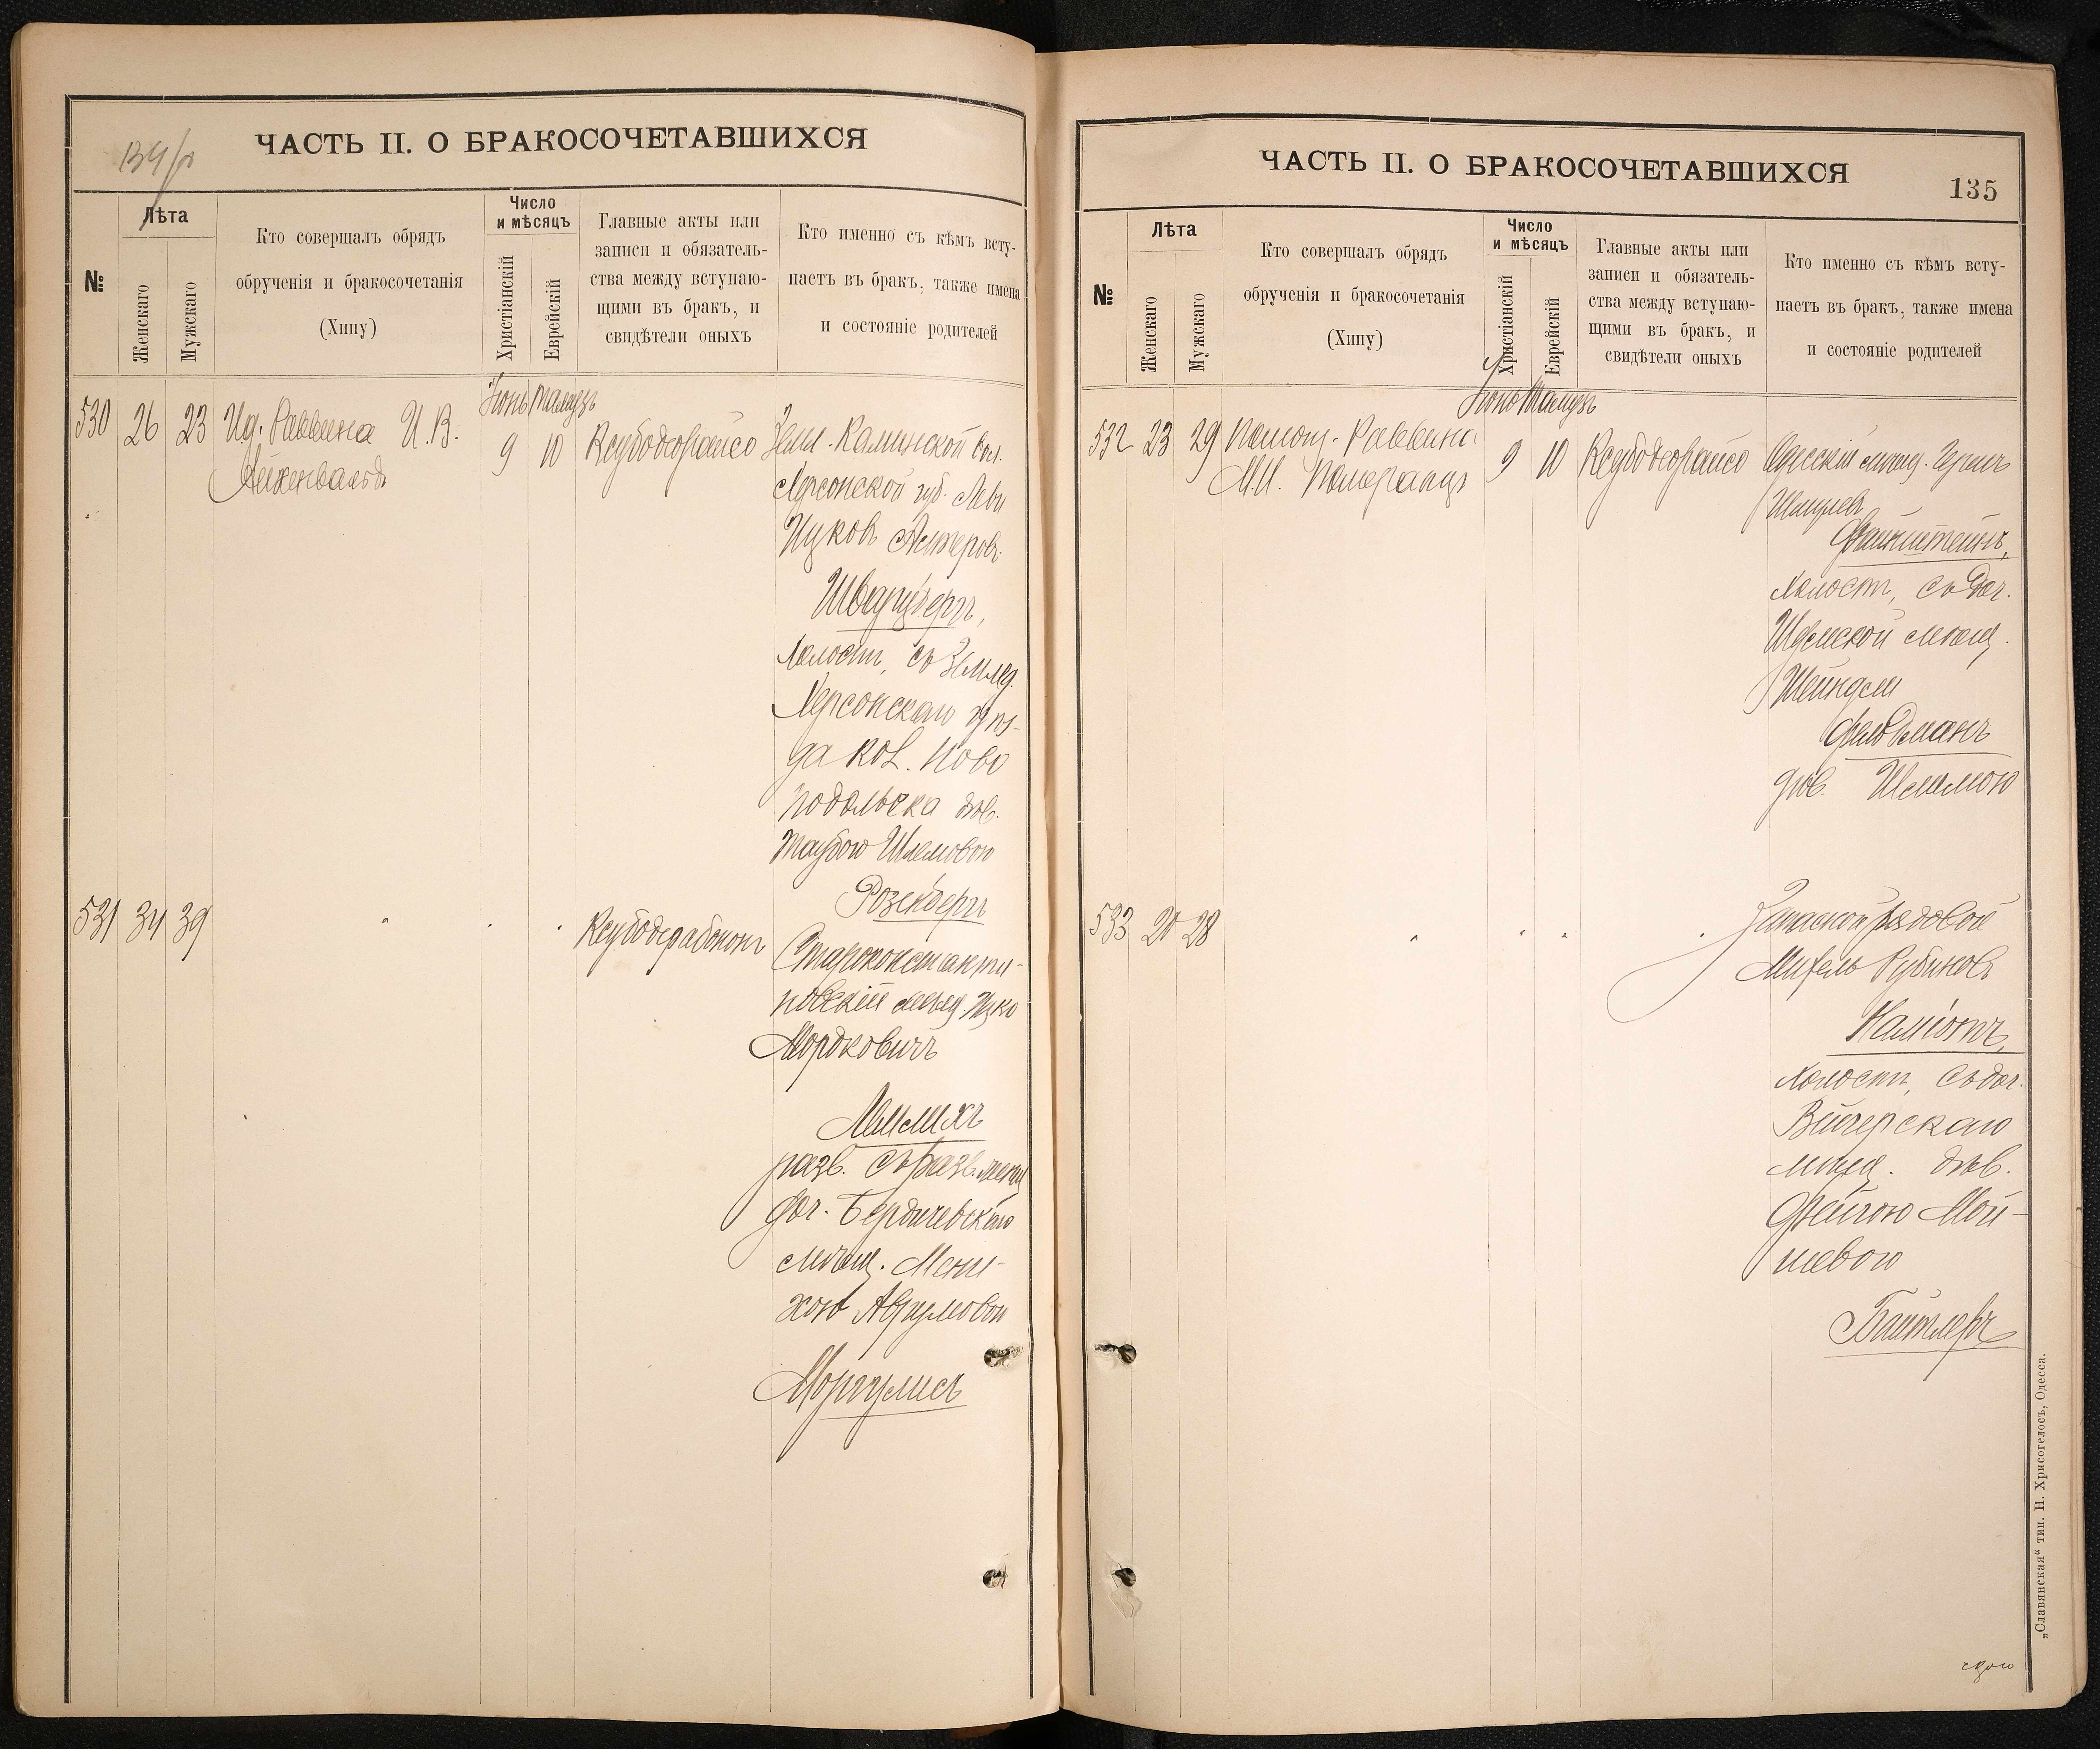 134/об
ЧАСТЬ II. О БРАКОСОЧЕТАВШИХСЯ
№
Лѣта
Женскаго
Мужскаго
Кто совершалъ обрядъ
обрученія и бракосочетанія
(Хипу)
Число
и мѣсяцъ
Христіанскій
Еврейскій
Главные акты или
записи и обязатель-
ства между вступаю-
щими въ бракъ, и
свидѣтели оныхъ
Кто именно съ кѣмъ всту-
паетъ въ бракъ, также имена
и состояніе родителей
530 26 23
Раввина И. В.
Айхенвальдъ
Іюнь Тамузъ
9 10
Ксубодеорайсо
Земл. Каминской кол.
Херсонской губ. Леви
Ицковъ
Шварцбергъ,
холостъ, съ Землед.
Херсонскаго уѣз-
да кол. Ново
подольска дѣв.
Таубою Шлемовою
Розенбергъ
531 34 39
Ксубодерабонон
Староконстанти-
новскій мѣщ. Ицко
Мордковичъ
разв. съ разв.
доч. Бердичевскаго
мѣщ. Мени-
хою Аврумовой
Моргулисъ
ЧАСТЬ II. О БРАКОСОЧЕТАВШИХСЯ
135
№
Лѣта
Женскаго
Мужскаго
Кто совершалъ обрядъ
обрученія и бракосочетанія
(Хипу)
Число
и мѣсяцъ
Христіанскій
Еврейскій
Главные акты или
записи и обязатель-
ства между вступаю-
щими въ бракъ, и
свидѣтели оныхъ
Кто именно съ кѣмъ всту-
паетъ въ бракъ, также имена
и состояніе родителей
532 23 29
Помощ. Раввина
М. И. Померанцъ
Іюнь Тамузъ
9 10
Ксубодеорайсо
Одесскій мѣщ. Гершъ
Шмулевъ
Файнштейнъ,
холостъ, съ доч.
мѣщ.
Шейндли
Фельдманъ
дѣв.
533 20 28
Запасной рядовой
Михель Рубиновъ
Каміонъ,
холостъ, съ доч.
мѣщ. дѣв.
Фейгою Мой-
шевою
Байтлеръ
„Славянская“ тип. Н. Хрисогелосъ, Одесса.